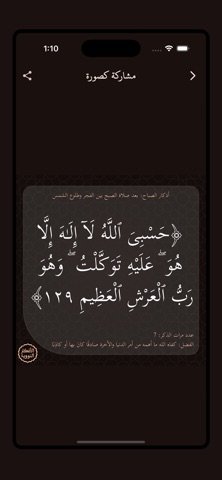 1:10
مشاركة كصورة
أذكار الصباح: بعد صلاة الصبح بين الفجر وطلوع الشمس
﴿حَسْبِيَ ٱللَّهُ لَآ إِلَـٰهَ إِلَّا
هُوَ ۖ عَلَيْهِ تَوَكَّلْتُ ۖ وَهُوَ
رَبُّ ٱلْعَرْشِ ٱلْعَظِيمِ ١٢٩﴾
عدد مرات الذكر: ٧
الفضل: كفاه الله ما أهمه من أمر الدنيا والآخرة صادقًا كان بها أو كاذبًا
الأذكار
النووية